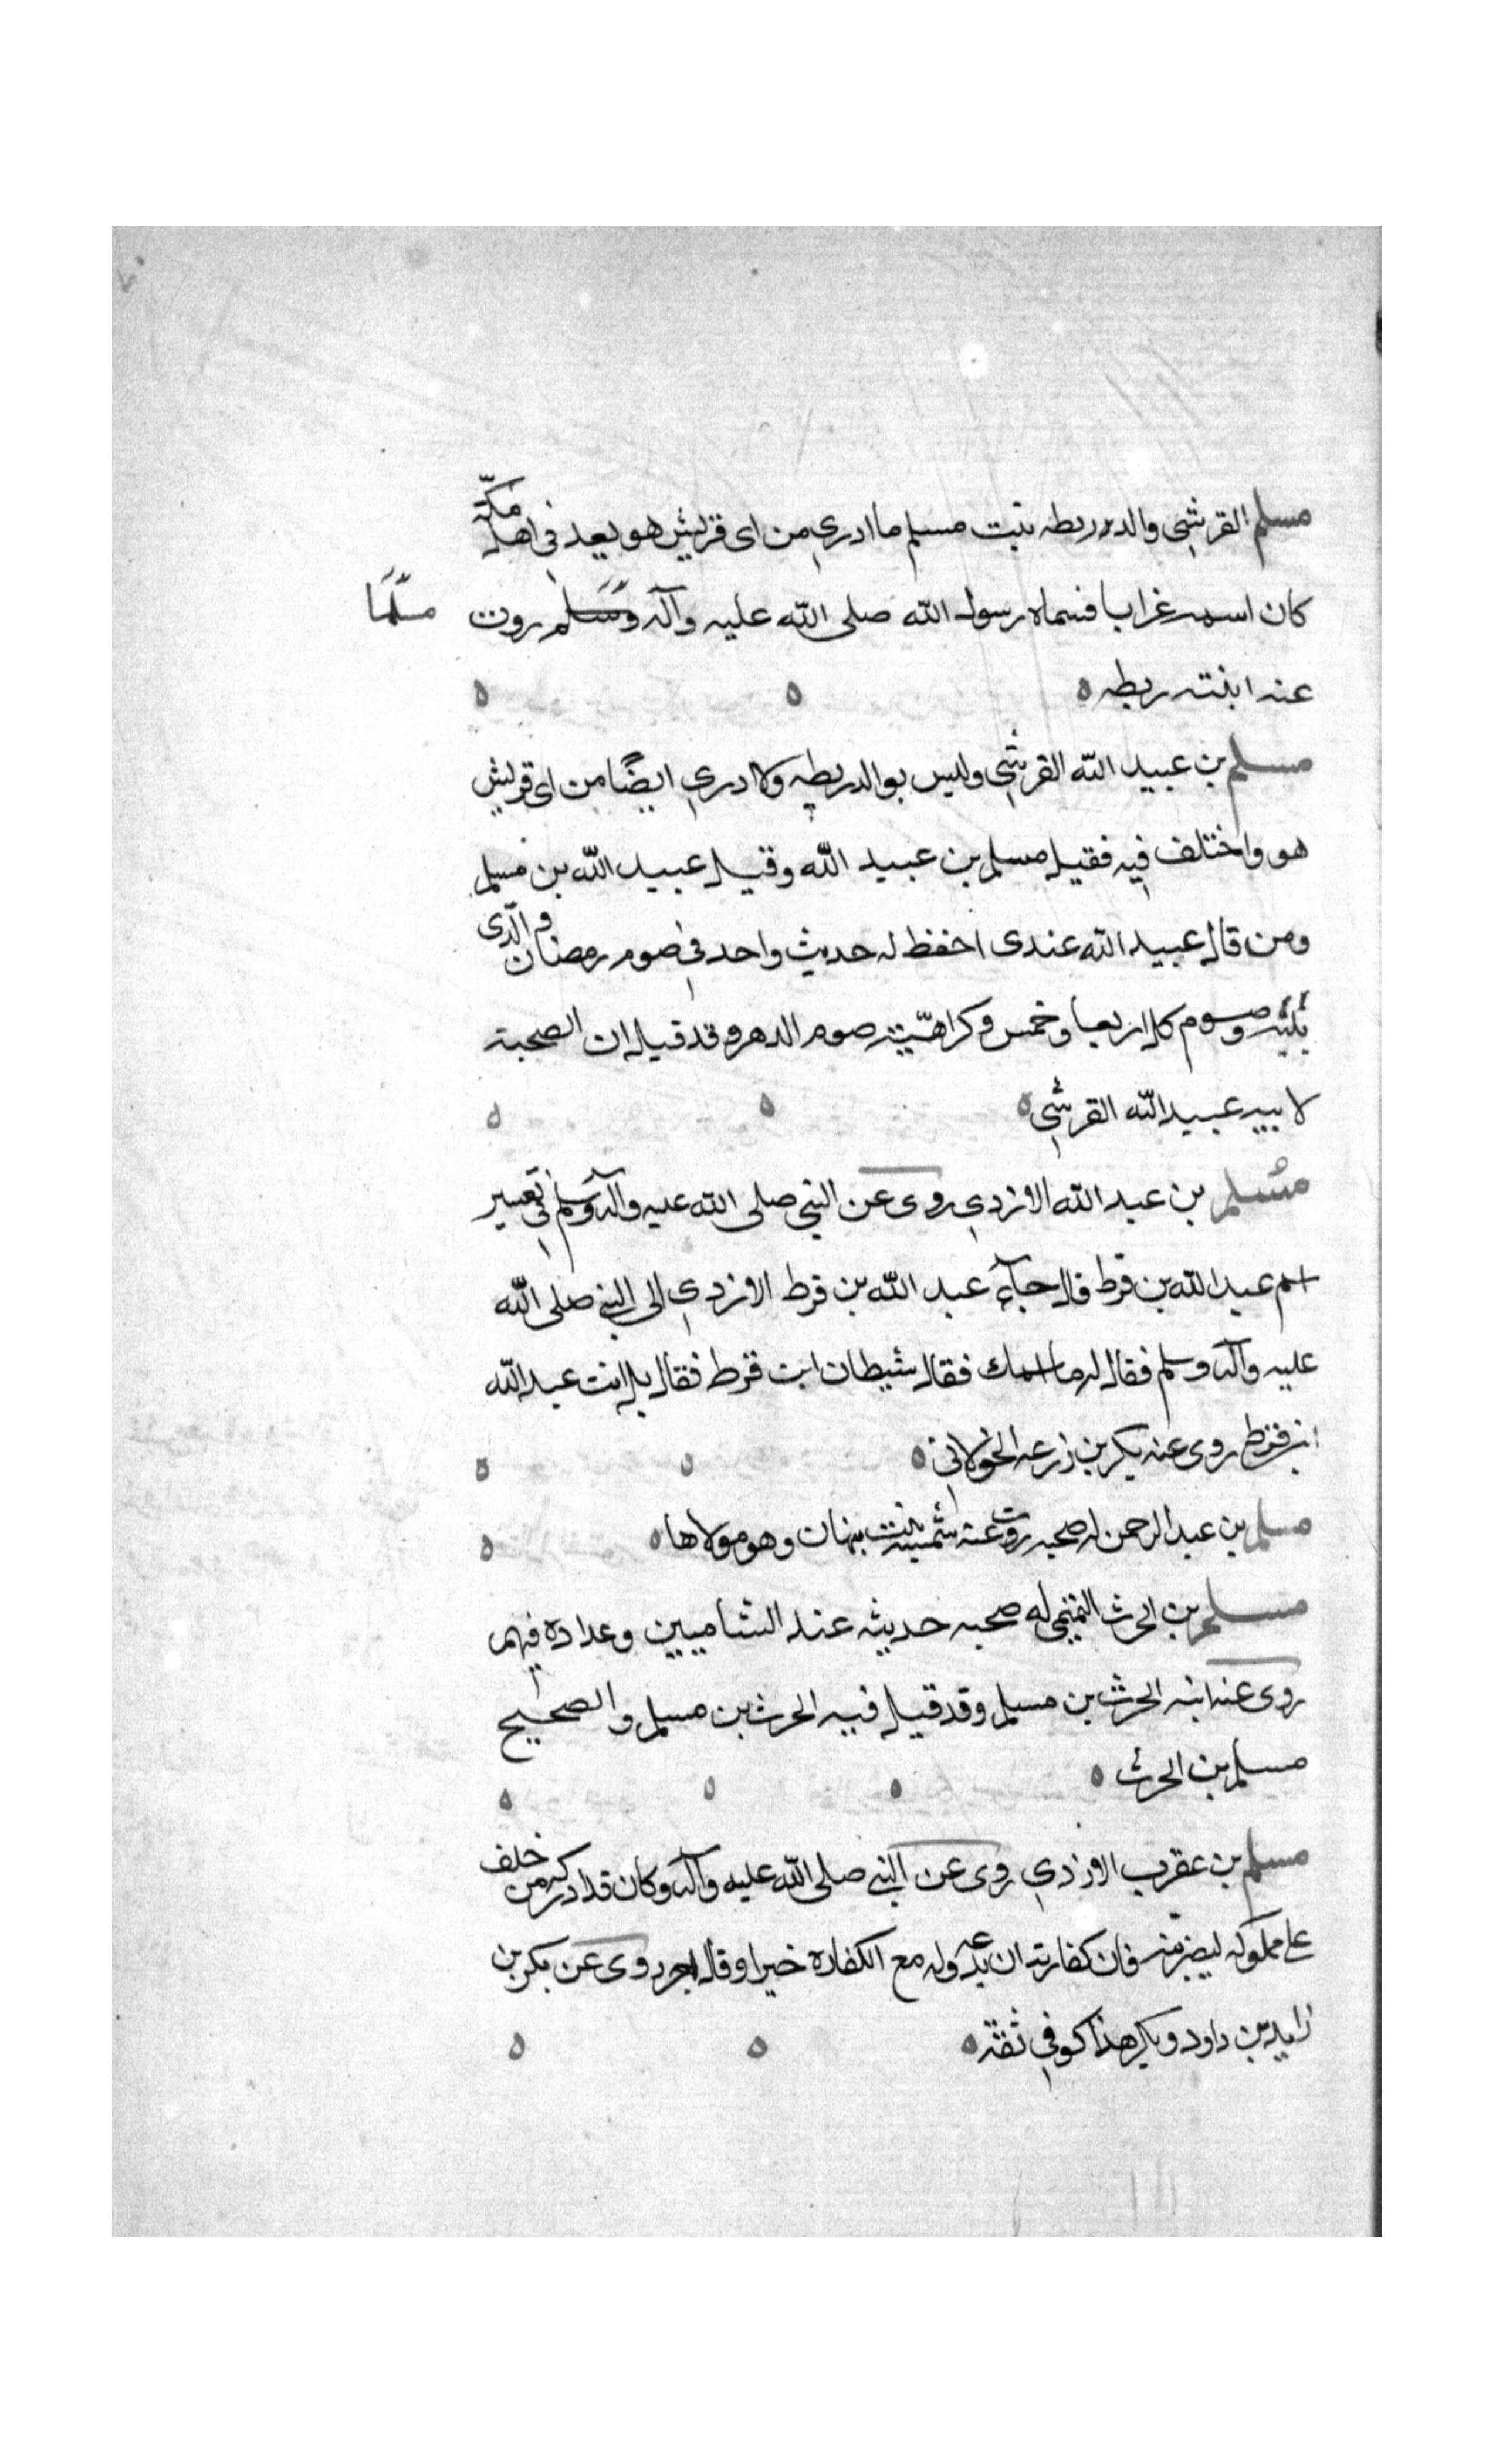 مسلم القرشي والده ريطه بنت مسلم ما ادري من اى قريش هو يعد في اهل مكّة
كان اسمه غرابا فسماه رسول الله صلى الله عليه وآله وسلم روت مسلّما
عنه ابنته ريطه ه ه ه
مسلم بن عبيد الله القرشي وليس بوالد ريطه ولا ادري ايضًا من اى قريش
هو واختلف فيه فقيل مسلم بن عبيد الله وقيل عبيد الله بن مسلم
ومن قال عبيد الله عندى احفظ له حديث واحد في صوم رمضان والّذى
يليه وصوم كل اربعا وخمس وكراهيّة صوم الدهر وقد قيل ان الصحبة
لابيه عبيد الله القرشي ه ه ه
مسلم بن عبد الله الازدي روى عن النبي صلى الله عليه وآله وسلم في تغيير
اسم عبد الله بن قرط قال جآء عبد الله بن قرط الازدي الى النبي صلى الله
عليه وآله وسلم فقال له ما اسمك فقال شيطان ابن قرط فقال بل انت عبد الله
ابن قرط روى عنه بكر بن زرعه الخولاني ه ه ه
مسلم بن عبد الرحمن له صحبه روت عنه شميسة بنت نبهان وهو مولاها ه ه
مسلم بن الحرث التميمي له صحبه حديثه عند الشاميين وعداده فيهم
روى عنه ابنه الحرث بن مسلم وقد قيل فيه الحرث بن مسلم والصحيح
مسلم بن الحرث ه ه ه ه
مسلم بن عقرب الازدي روى عن النبي صلى الله عليه وآله وكان قد ادركه من خلف
على مملوكه ليضربنه فان كفارته ان يدعه وله مع الكفاره خيرا وقال اجر روى عن بكر بن
زايد بن داود وبكر هذا كوفي ثقة ه ه ه